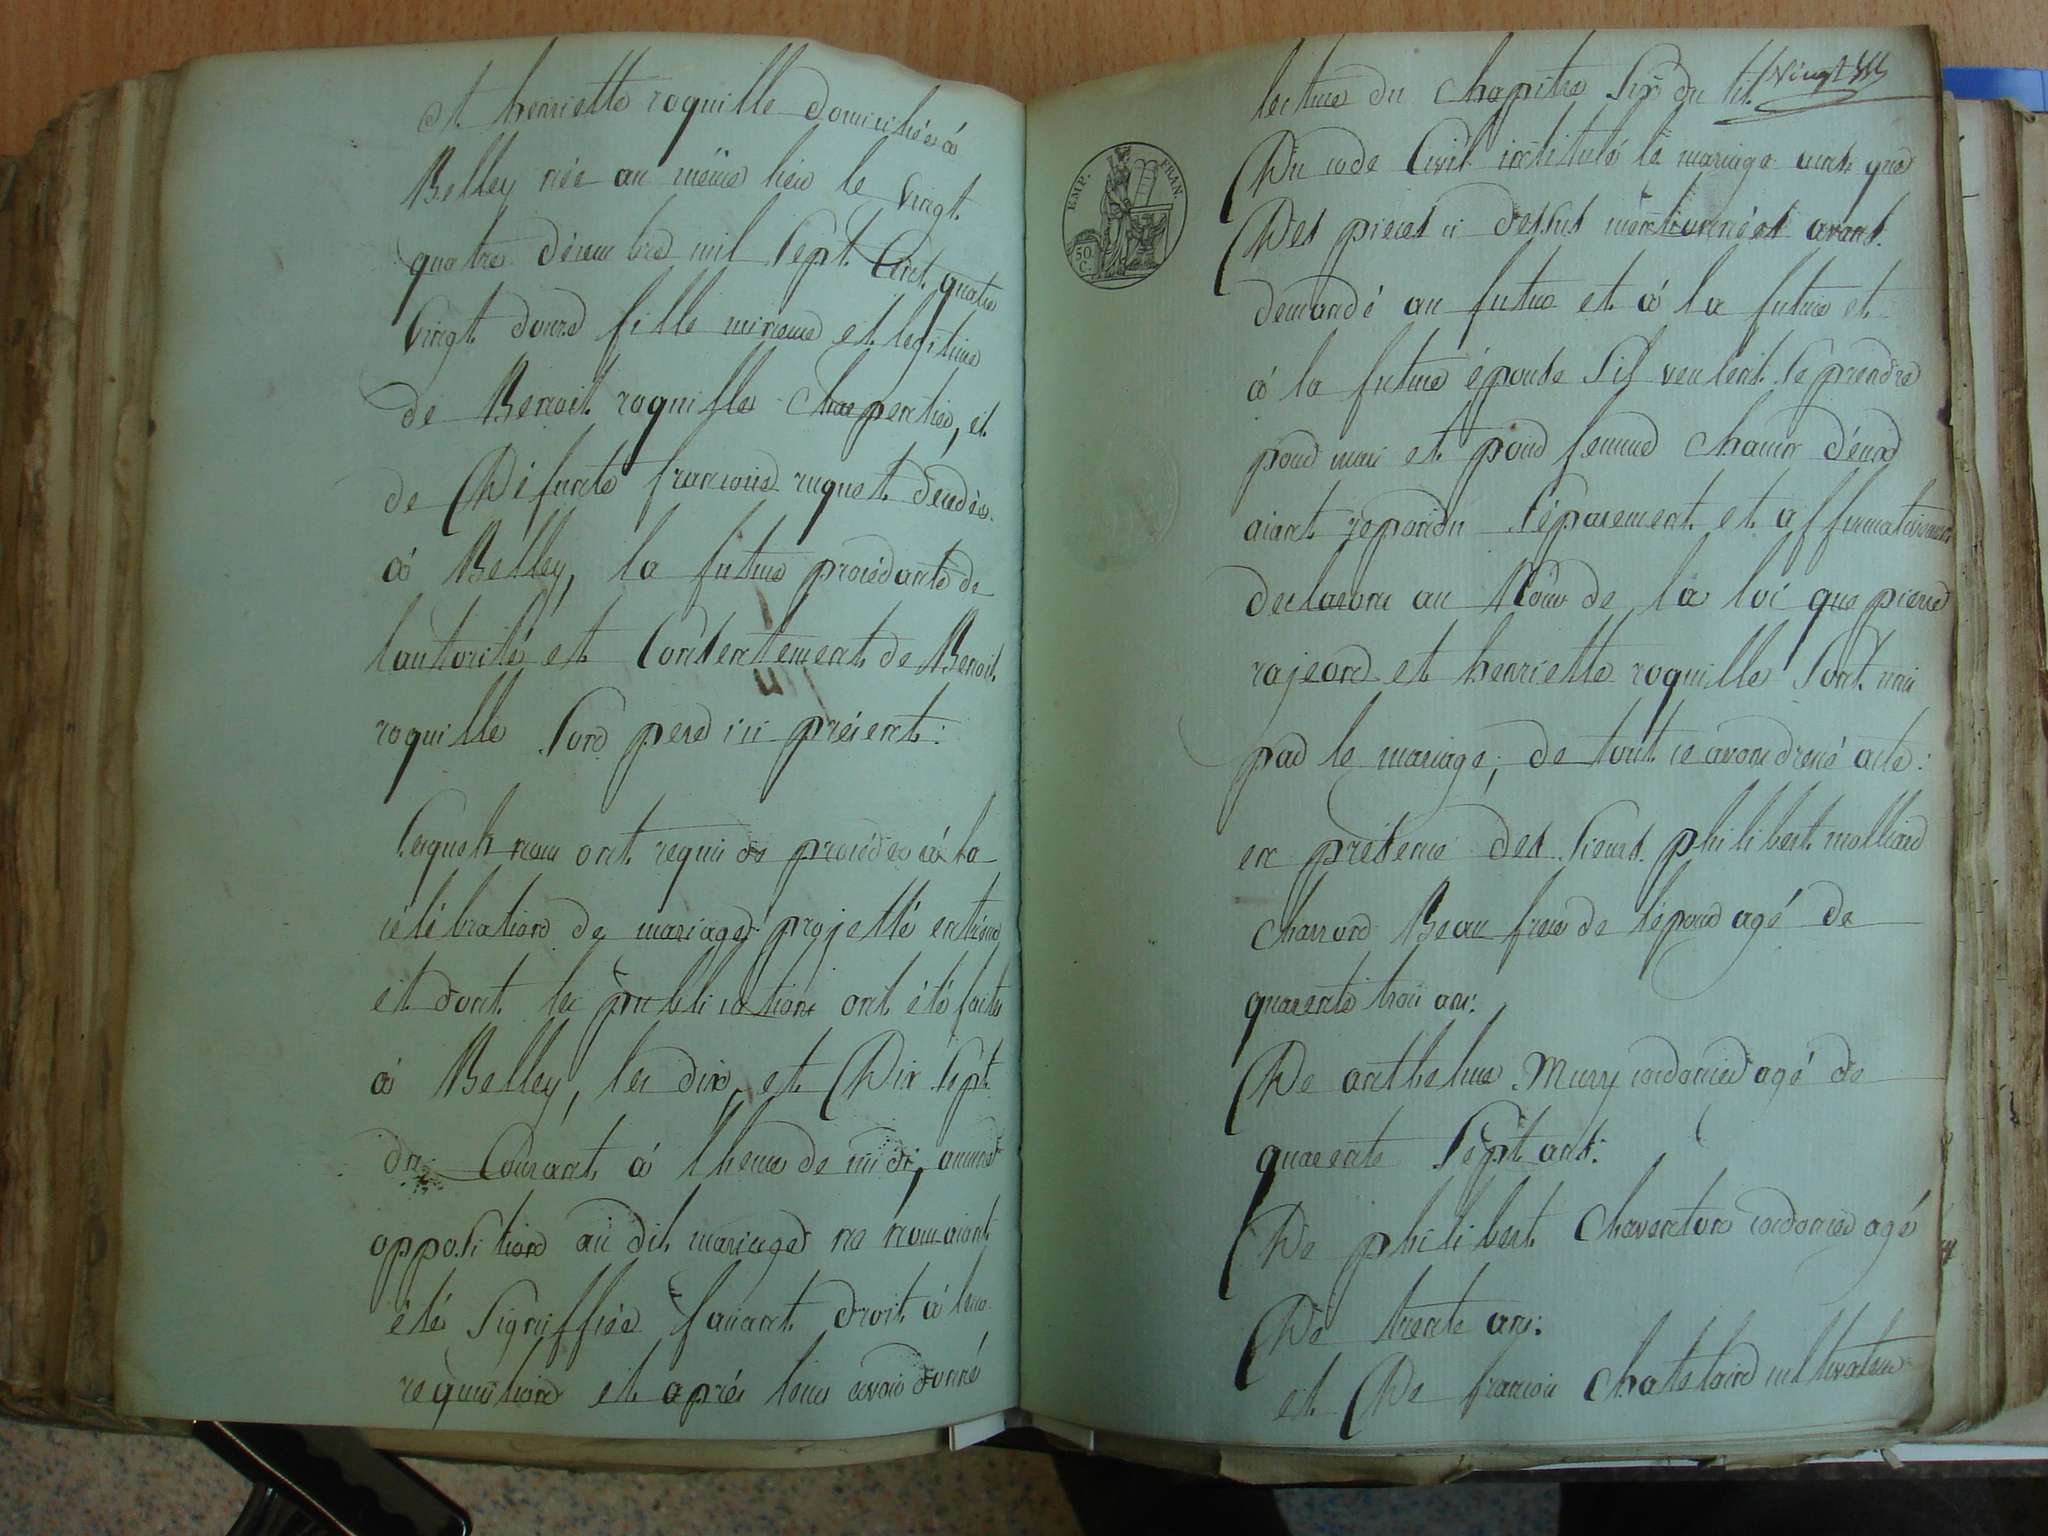 et henriette roquille domiciliée à
Belley née au même lieu le vingt
quatre décembre mil sept cent quatre
vingt douze fille mineure et legitime
de Benoit roquille charpentier, et
de défunte francoise ruquet décédée
à Belley, la future procédante de
lautorité et consentement de Benoit
roquille son pere ici présent:
lesquels nous ont requis de procéder à la
célébration de mariage projetté entreux
et dont les publications ont été faites
à Belley, les dix et dix sept
du courant à lheure de midi, aucune
opposition au dit mariage ne nous aiant
été signiffiée faisant droit à leur
requisition et après leur avoir donné
vingt
lecture du chapitre six du tit
EMP. FRAN.
50 C.
Du code Civil intitulé le mariage ainsi que
des pieces ci dessus mentionnées avons
demandé au futur et à la future et
à la future épouse sil veulent se prendre
pour mari et pour femme chacun deux
aiant repondu séparement et affirmativement
declarons au Nom de la loi que pierre
rajeon et henriette roquille sont unis
par le mariage; de tout ce avons dressé acte:
en présence des sieurs philibert molliard
charron Beau frere de lépoux agé de
quarente trois ans:
De anthelme Mury cordonier agé de
quarente sept ans:
De philibert chaventon cordonier agé
De trente ans:
et De francois chatelain cultivateur